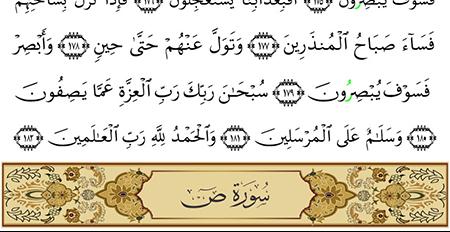 فَسَوْفَ يُبْصِرُونَ ﴿١٧٥﴾ أَفَبِعَذَابِنَا يَسْتَعْجِلُونَ ﴿١٧٦﴾ فَإِذَا نَزَلَ بِسَاحَتِهِمْ
فَسَآءَ صَبَاحُ ٱلْمُنذَرِينَ ﴿١٧٧﴾ وَتَوَلَّ عَنْهُمْ حَتَّىٰ حِينٍ ﴿١٧٨﴾ وَأَبْصِرْ
فَسَوْفَ يُبْصِرُونَ ﴿١٧٩﴾ سُبْحَـٰنَ رَبِّكَ رَبِّ ٱلْعِزَّةِ عَمَّا يَصِفُونَ
﴿١٨٠﴾ وَسَلَـٰمٌ عَلَى ٱلْمُرْسَلِينَ ﴿١٨١﴾ وَٱلْحَمْدُ لِلَّهِ رَبِّ ٱلْعَـٰلَمِينَ ﴿١٨٢﴾
سُورَةُ صٓ